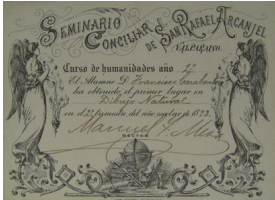 SEMINARIO CONCILIAR
DE SAN RAFAEL ARCANJEL
VALPARAISO.
Curso de humanidades año
El Alumno D. Francisco
ha obtenido el primer lugar en
Dibujo Natural
en el 2º trimestre del año escolar de 1873.
Manuel
RECTOR